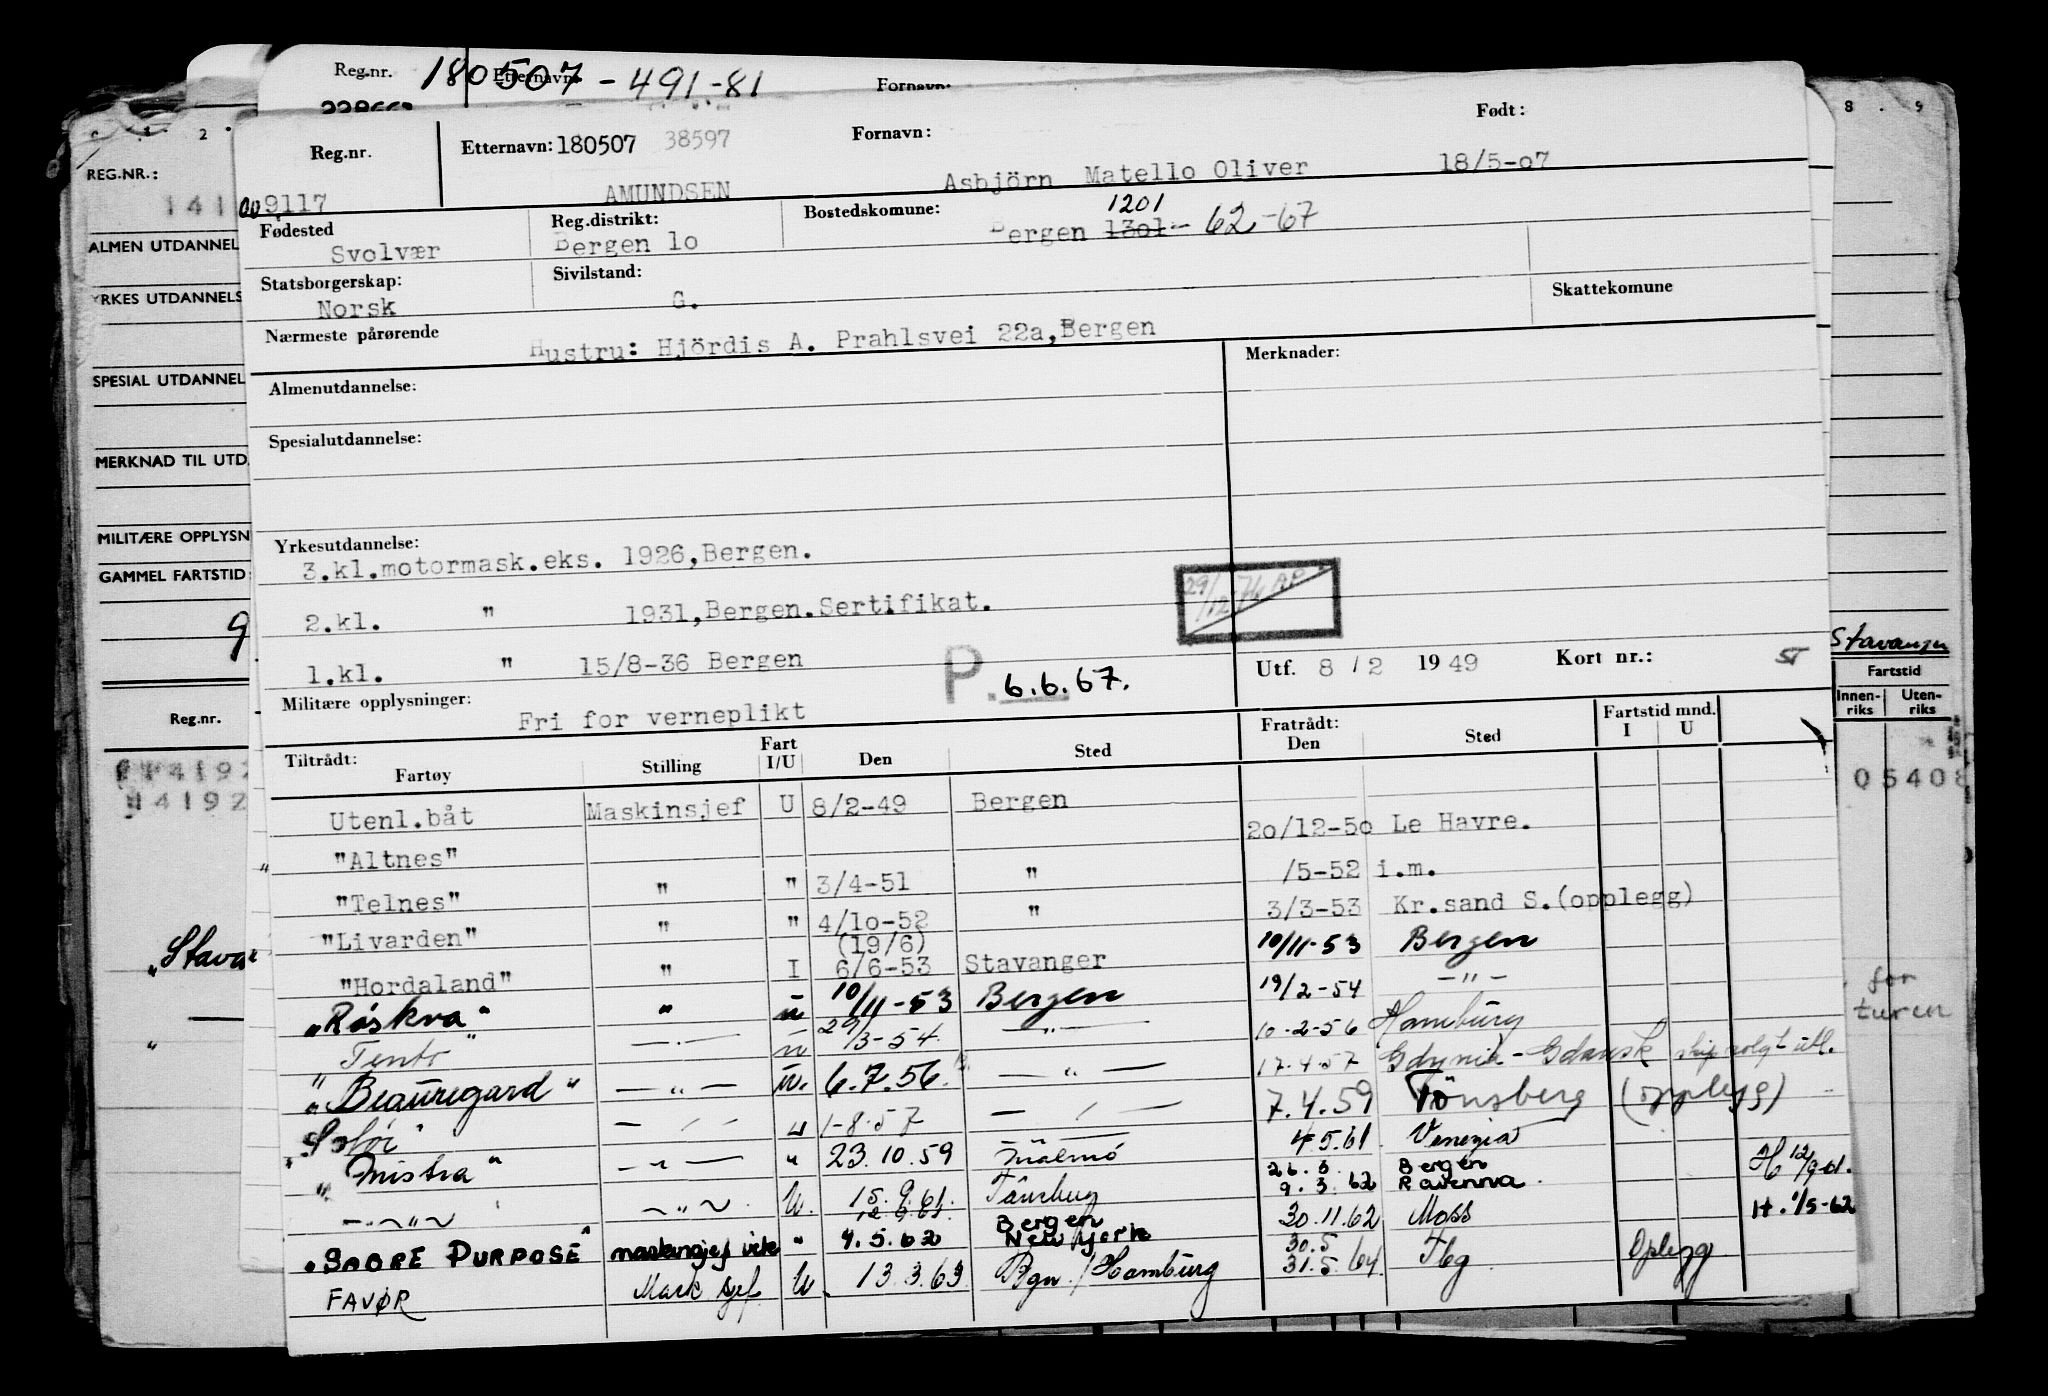 Reg.nr. 180507-491-81 Etternavn: Fornavn:
Reg.nr. Etternavn: 180507 38597 Fornavn: Født:
009117 AMUNDSEN Asbjörn Matello Oliver 18/5-07
Fødested Reg.distrikt: Bostedskomune: 1201
Svolvær Bergen lo Bergen 1301- 62-67
Statsborgerskap: Sivilstand: Skattekomune
Norsk G.
Nærmeste pårørende Hustru: Hjördis A. Prahlsvei 22a, Bergen
Almenutdannelse: Merknader:
Spesialutdannelse:
Yrkesutdannelse:
3.kl.motormask.eks. 1926, Bergen.
2.kl. " 1931, Bergen. Sertifikat.
1.kl. " 15/8-36 Bergen
P. 6.6.67.
Utf. 8 / 2 1949 Kort nr.: ST
Militære opplysninger: Fri for verneplikt
Tiltrådt: Fartøy Stilling Fart I/U Den Sted Fratrådt: Den Sted Fartstid mnd. I U
Utenl.båt Maskinsjef U 8/2-49 Bergen
"Altnes" 20/12-50 Le Havre.
"Telnes" " " 3/4-51 " /5-52 i.m.
"Livarden" " " 4/10-52 " 3/3-53 Kr.sand S.(opplegg)
(19/6)
"Hordaland" " I 6/6-53 Stavanger 10/11-53 Bergen
"Røskva" " u 10/11-53 Bergen 19/2-54 -"-
"Tento" -"- u 29/3-54 -"- 10-2-56 Hamburg
"Beauregard" -"- u. 6.7.56 -"- 17.4.57 Gdynia-Gdansk skip solgt utl.
-"- u 1-8-57 -"- 7.4.59 Tönsberg (opplegg)
"Mistra" -"- " 23.10.59 Malmö 4.5.61 Venezia
-"- -"- U. 15.9.61. Tönsberg 26.3. Bergen H 12/9-61.
12.9.61 9.3.62 Ravenna.
"SABRE PURPOSE" maskinsjef vik " 4.5.62 Bergen New York 30.11.62 Moss H. /5-62
FAVØR Mask sjef U. 13.3.63 Bgn./Hamburg 30.5 31.5.64 Tbg Oplegg
REG.NR.:
ALMEN UTDANNEL
YRKES UTDANNELS
SPESIAL UTDANNEL
MERKNAD TIL UTD.
MILITÆRE OPPLYSN
GAMMEL FARTSTID:
9
Reg.nr.
14192
"Stava
8 . 9
Stavanger
Fartstid
Innen-riks Uten-riks
05408
for
turen